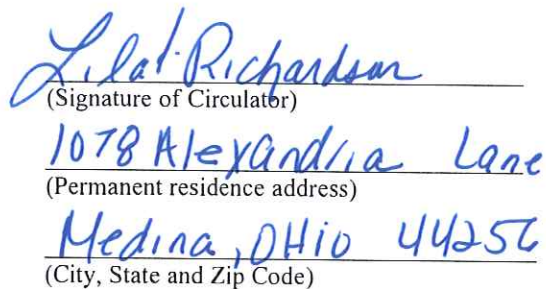 Richardson
(Signature of Circulator)
1078 Alexandria Lane
(Permanent residence address)
Medina, OHio 44256
(City, State and Zip Code)